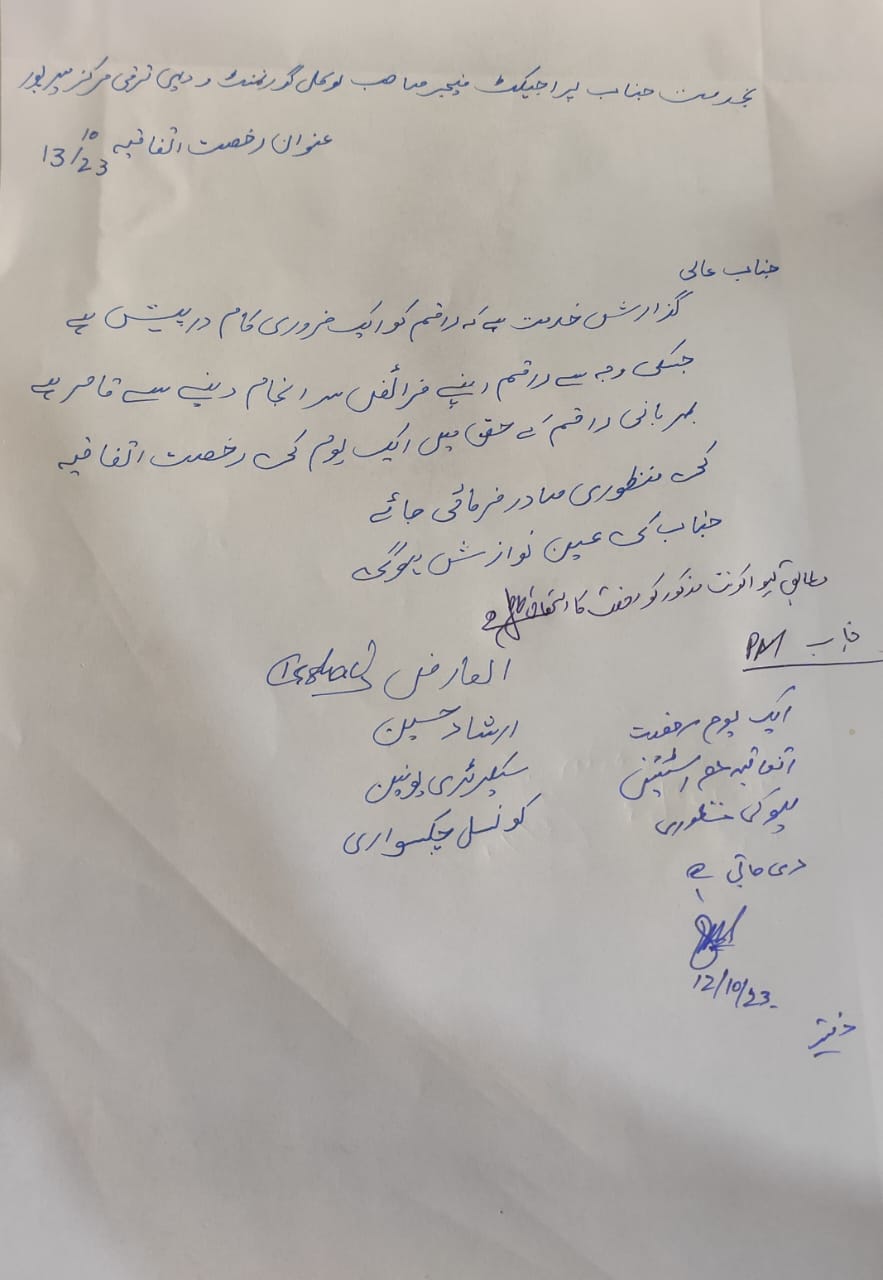 بخدمت جناب پراجیکٹ منیجر صاحب لوکل گورنمنٹ و دیہی ترقی مرکز میرپور
عنوان رخصت اتفاقیہ 13/10/23
جناب عالی
گذارش خدمت ہے کہ راقم کو ایک ضروری کام درپیش ہے
جسکی وجہ سے راقم اپنے فرائض سر انجام دینے سے قاصر ہے
بمہربانی راقم کے حق میں ایک یوم کی رخصت اتفاقیہ
کی منظوری صادر فرمائی جائے
جناب کی عین نوازش ہوگی
مطابق لیو اکونٹ مذکور کو رخصت کا استحقاق ہے
جناب PM
العارض Irshad
ارشاد حسین
سیکریٹری یونین
کونسل چکسواری
ایک یوم رخصت
اتفاقیہ معہ اسٹیشن
لیو کی منظوری
دی جاتی ہے
12/10/23
دفتر